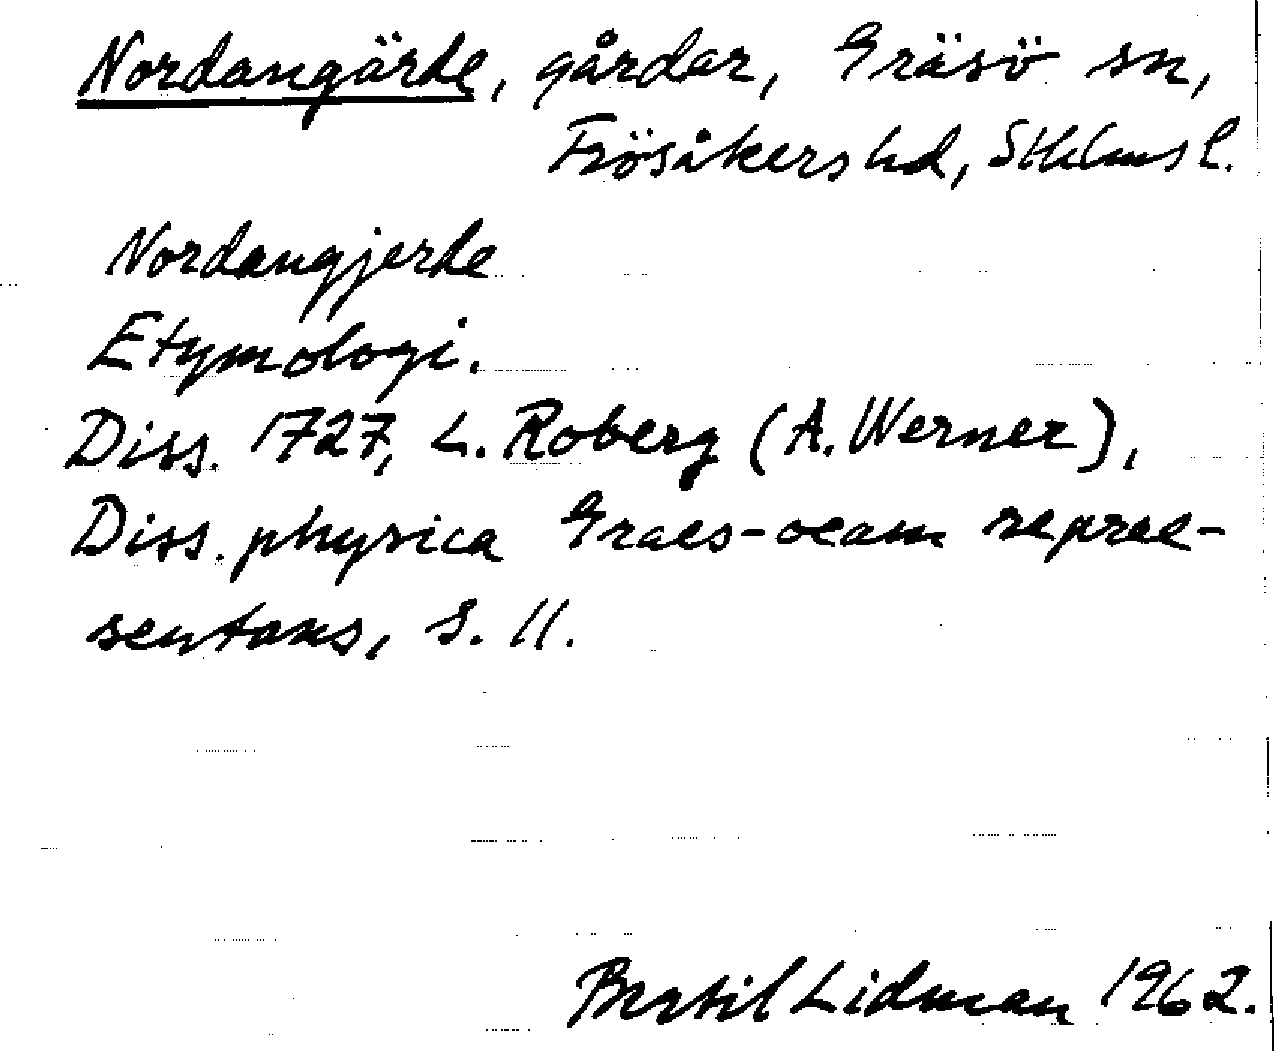 Nordangärde, gårdar, Gräsö sn,
Frösåkers hd, Sthlms l.
Nordangjerde
Etymologi.
Diss. 1727, L. Roberg (A. Werner),
Diss. physica Graes-oeam reprae-
sentans, s. 11.
Bertil Lidman 1962.